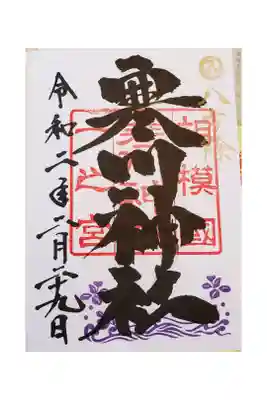 八方除
寒川神社
相模國
一之宮
令和二年二月廿九日